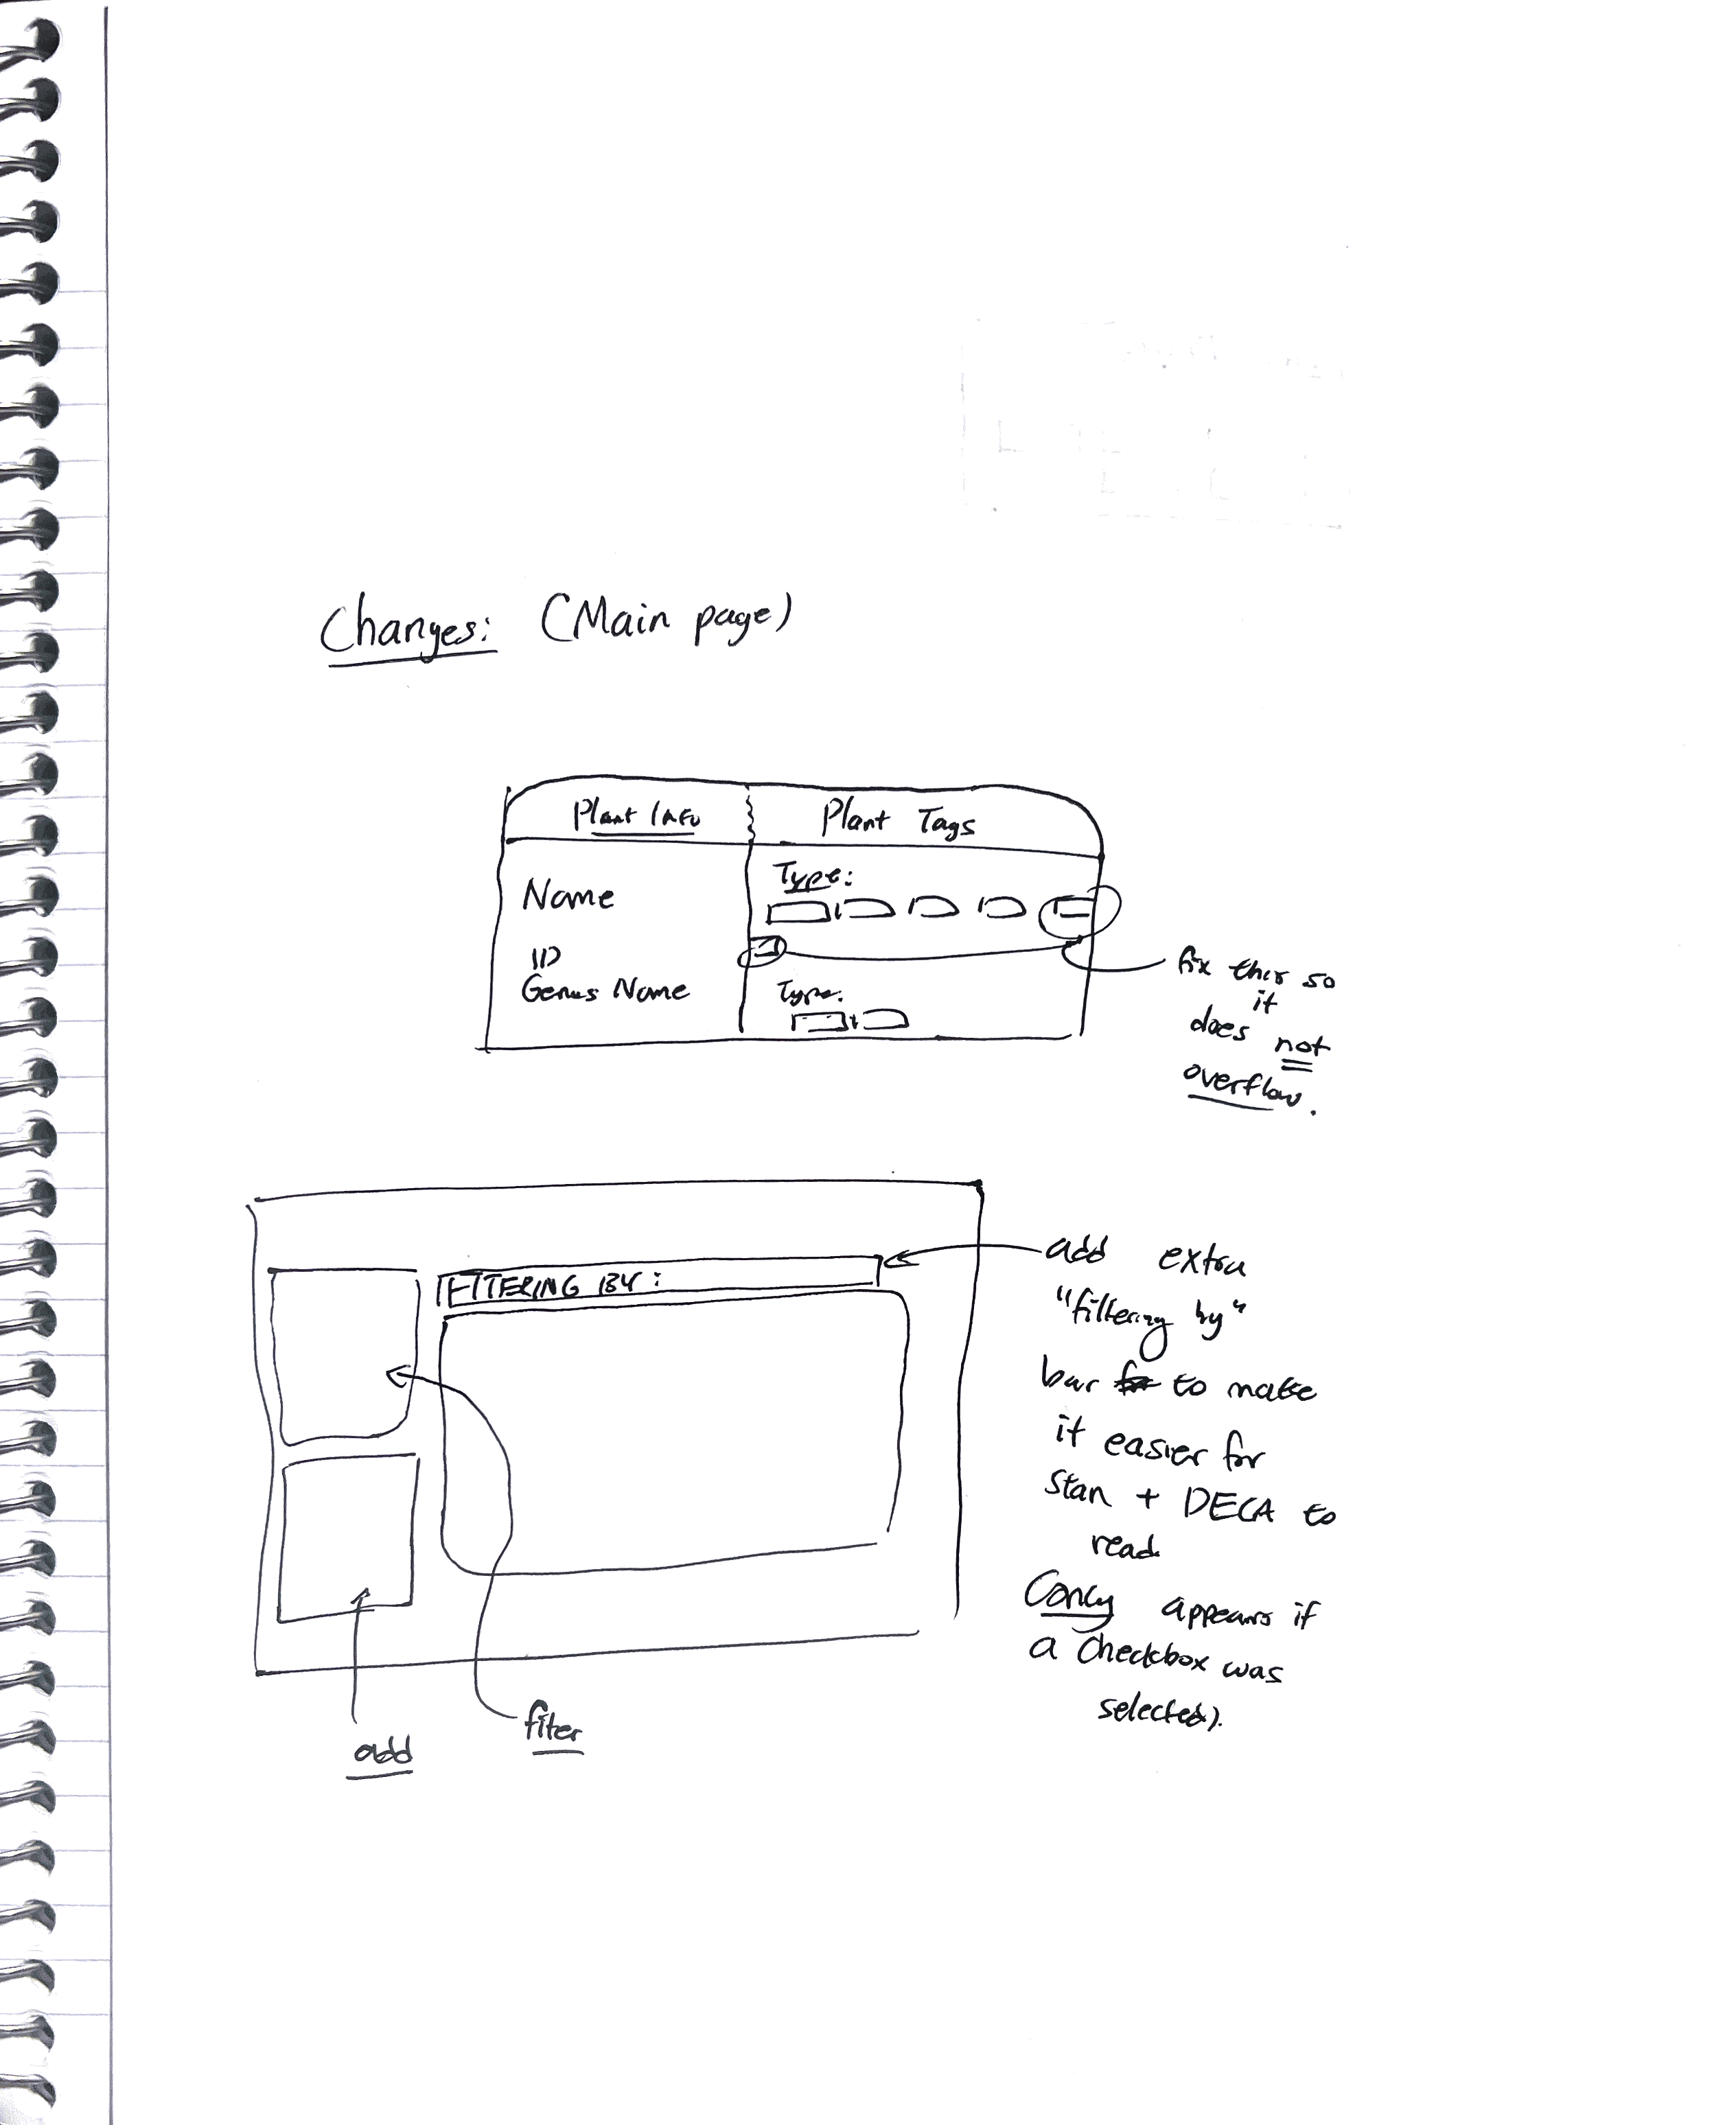 Changes: (Main page)
Plant Info
Plant Tags
Name
Type:
ID
Genus Name
Type:
fix this so
it
does not
overflow.
FITERING BY:
add extra
"filtering by"
bar to make
it easier for
stan + DECA to
read
(only appears if
a checkbox was
selected).
add
filter